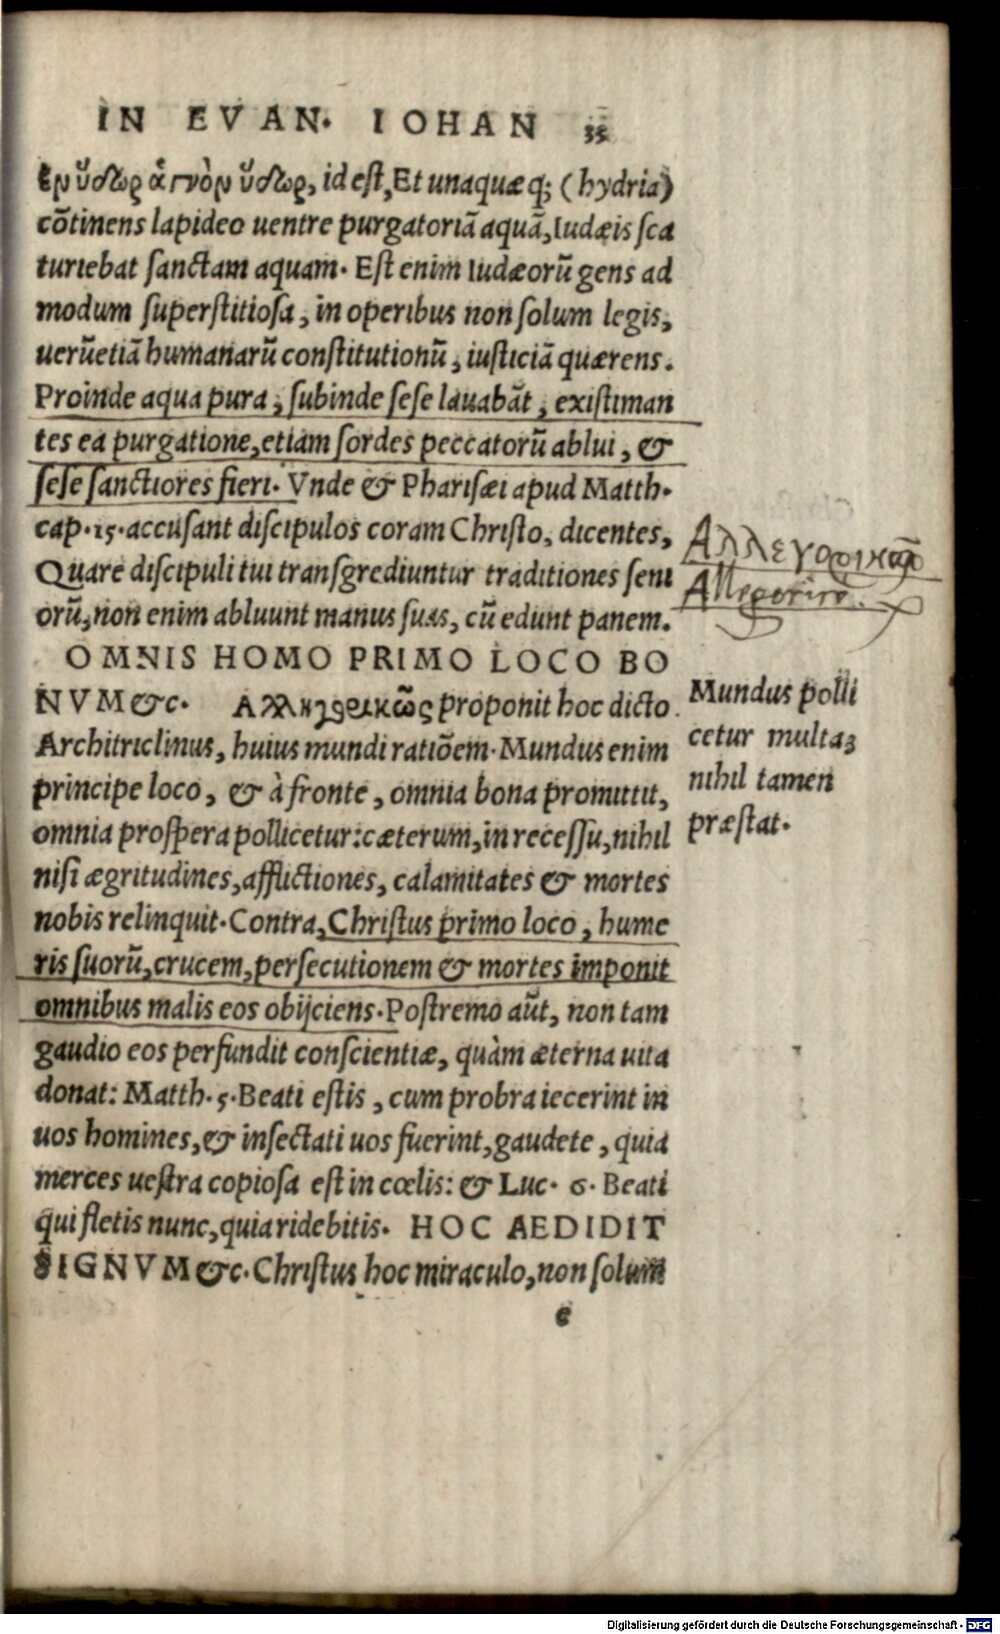 IN EVAN. IOHAN 35
ἐν ὕδωρ ἁγνὸν ὕδωρ, id est, Et unaquæq; (hydria)
cõtinens lapideo uentre purgatoriã aquã, Iudæis sca
turiebat sanctam aquam. Est enim Iudæorũ gens ad
modum superstitiosa, in operibus non solum legis,
uerũetiã humanarũ constitutionũ, iusticiã quærens.
Proinde aqua pura, subinde sese lauabãt, existiman
tes ea purgatione, etiam sordes peccatorũ ablui, &
sese sanctiores fieri. Vnde & Pharisæi apud Matth.
cap. 15. accusant discipulos coram Christo, dicentes,
Quare discipuli tui transgrediuntur traditiones seni
orũ, non enim abluunt manus suas, cũ edunt panem.
OMNIS HOMO PRIMO LOCO BO
NVM &c. Ἀλληγορικῶς proponit hoc dicto
Architriclinus, huius mundi ratiõem. Mundus enim
principe loco, & à fronte, omnia bona promittit,
omnia prospera pollicetur: cæterum, in recessu, nihil
nisi ægritudines, afflictiones, calamitates & mortes
nobis relinquit. Contra, Christus primo loco, hume
ris suorũ, crucem, persecutionem & mortes imponit
omnibus malis eos obijciens. Postremo aũt, non tam
gaudio eos perfundit conscientiæ, quàm æterna uita
donat: Matth. 5. Beati estis, cum probra iecerint in
uos homines, & insectati uos fuerint, gaudete, quia
merces uestra copiosa est in cœlis: & Luc. 6. Beati
qui fletis nunc, quia ridebitis. HOC AEDIDIT
SIGNVM &c. Christus hoc miraculo, non solum
e
Αλλεγορικῶς
Allegorice.
Mundus polli
cetur multa,
nihil tamen
præstat.
Digitalisierung gefördert durch die Deutsche Forschungsgemeinschaft - DFG